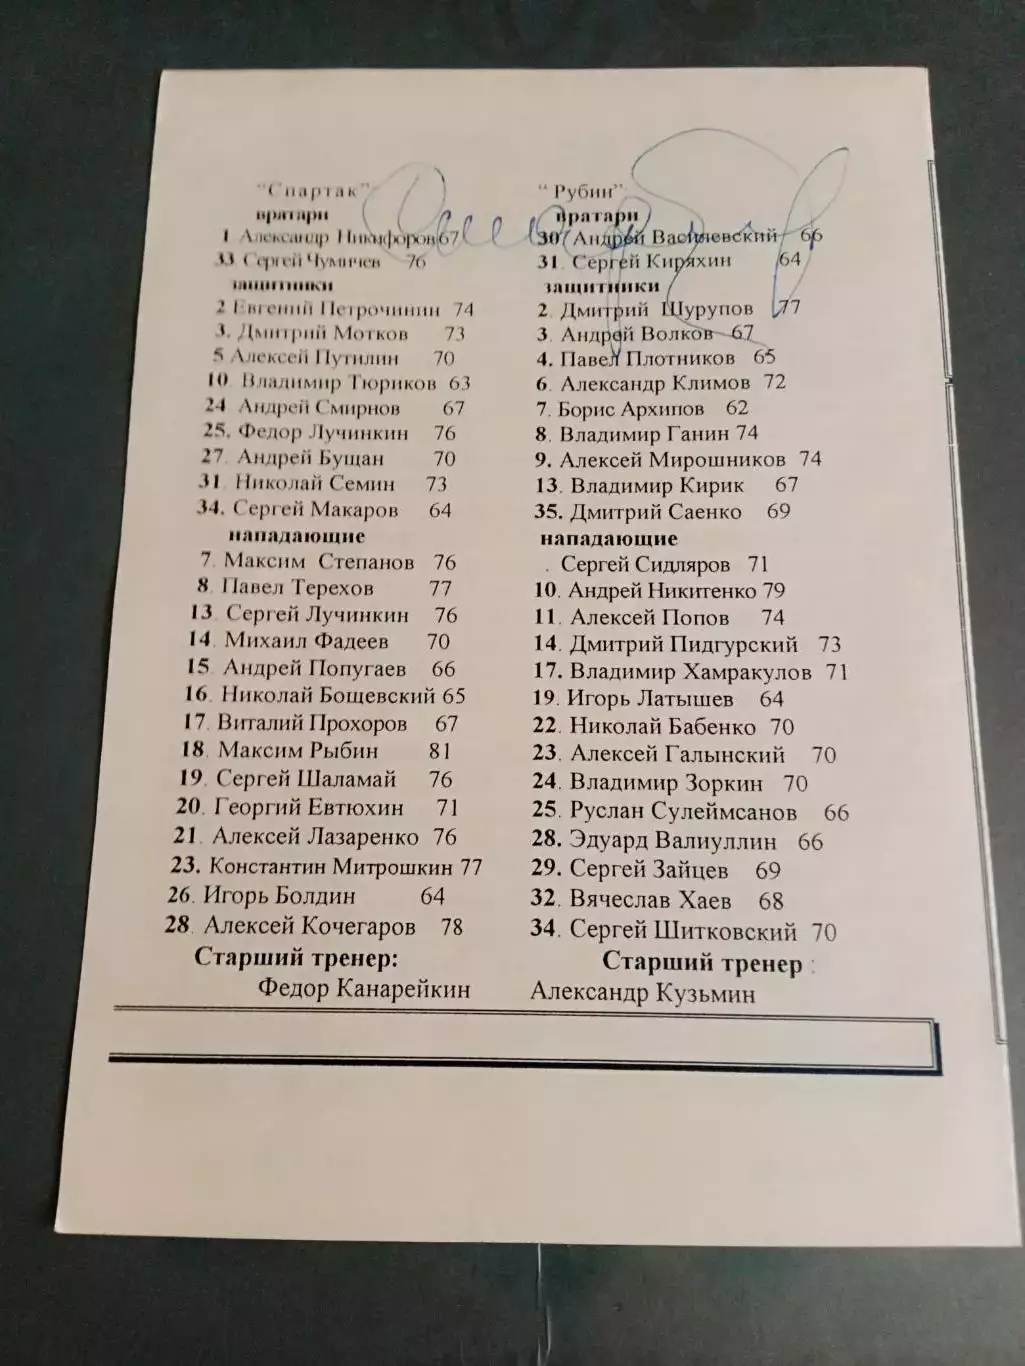 "Спартак"
вратари
1 Александр Никифоров 67
33 Сергей Чумичев 76
защитники
2 Евгений Петрочинин 74
3. Дмитрий Мотков 73
5 Алексей Путилин 70
10. Владимир Тюриков 63
24 Андрей Смирнов 67
25. Федор Лучинкин 76
27. Андрей Бущан 70
31 Николай Семин 73
34. Сергей Макаров 64
нападающие
7. Максим Степанов 76
8. Павел Терехов 77
13. Сергей Лучинкин 76
14. Михаил Фадеев 70
15. Андрей Попугаев 66
16. Николай Бощевский 65
17. Виталий Прохоров 67
18. Максим Рыбин 81
19. Сергей Шаламай 76
20. Георгий Евтюхин 71
21. Алексей Лазаренко 76
23. Константин Митрошкин 77
26. Игорь Болдин 64
28. Алексей Кочегаров 78
Старший тренер:
Федор Канарейкин
"Рубин"
вратари
30. Андрей Василевский 66
31. Сергей Киряхин 64
защитники
2. Дмитрий Шурупов 77
3. Андрей Волков 67
4. Павел Плотников 65
6. Александр Климов 72
7. Борис Архипов 62
8. Владимир Ганин 74
9. Алексей Мирошников 74
13. Владимир Кирик 67
35. Дмитрий Саенко 69
нападающие
. Сергей Сидляров 71
10. Андрей Никитенко 79
11. Алексей Попов 74
14. Дмитрий Пидгурский 73
17. Владимир Хамракулов 71
19. Игорь Латышев 64
22. Николай Бабенко 70
23. Алексей Галынский 70
24. Владимир Зоркин 70
25. Руслан Сулеймсанов 66
28. Эдуард Валиуллин 66
29. Сергей Зайцев 69
32. Вячеслав Хаев 68
34. Сергей Шитковский 70
Старший тренер :
Александр Кузьмин